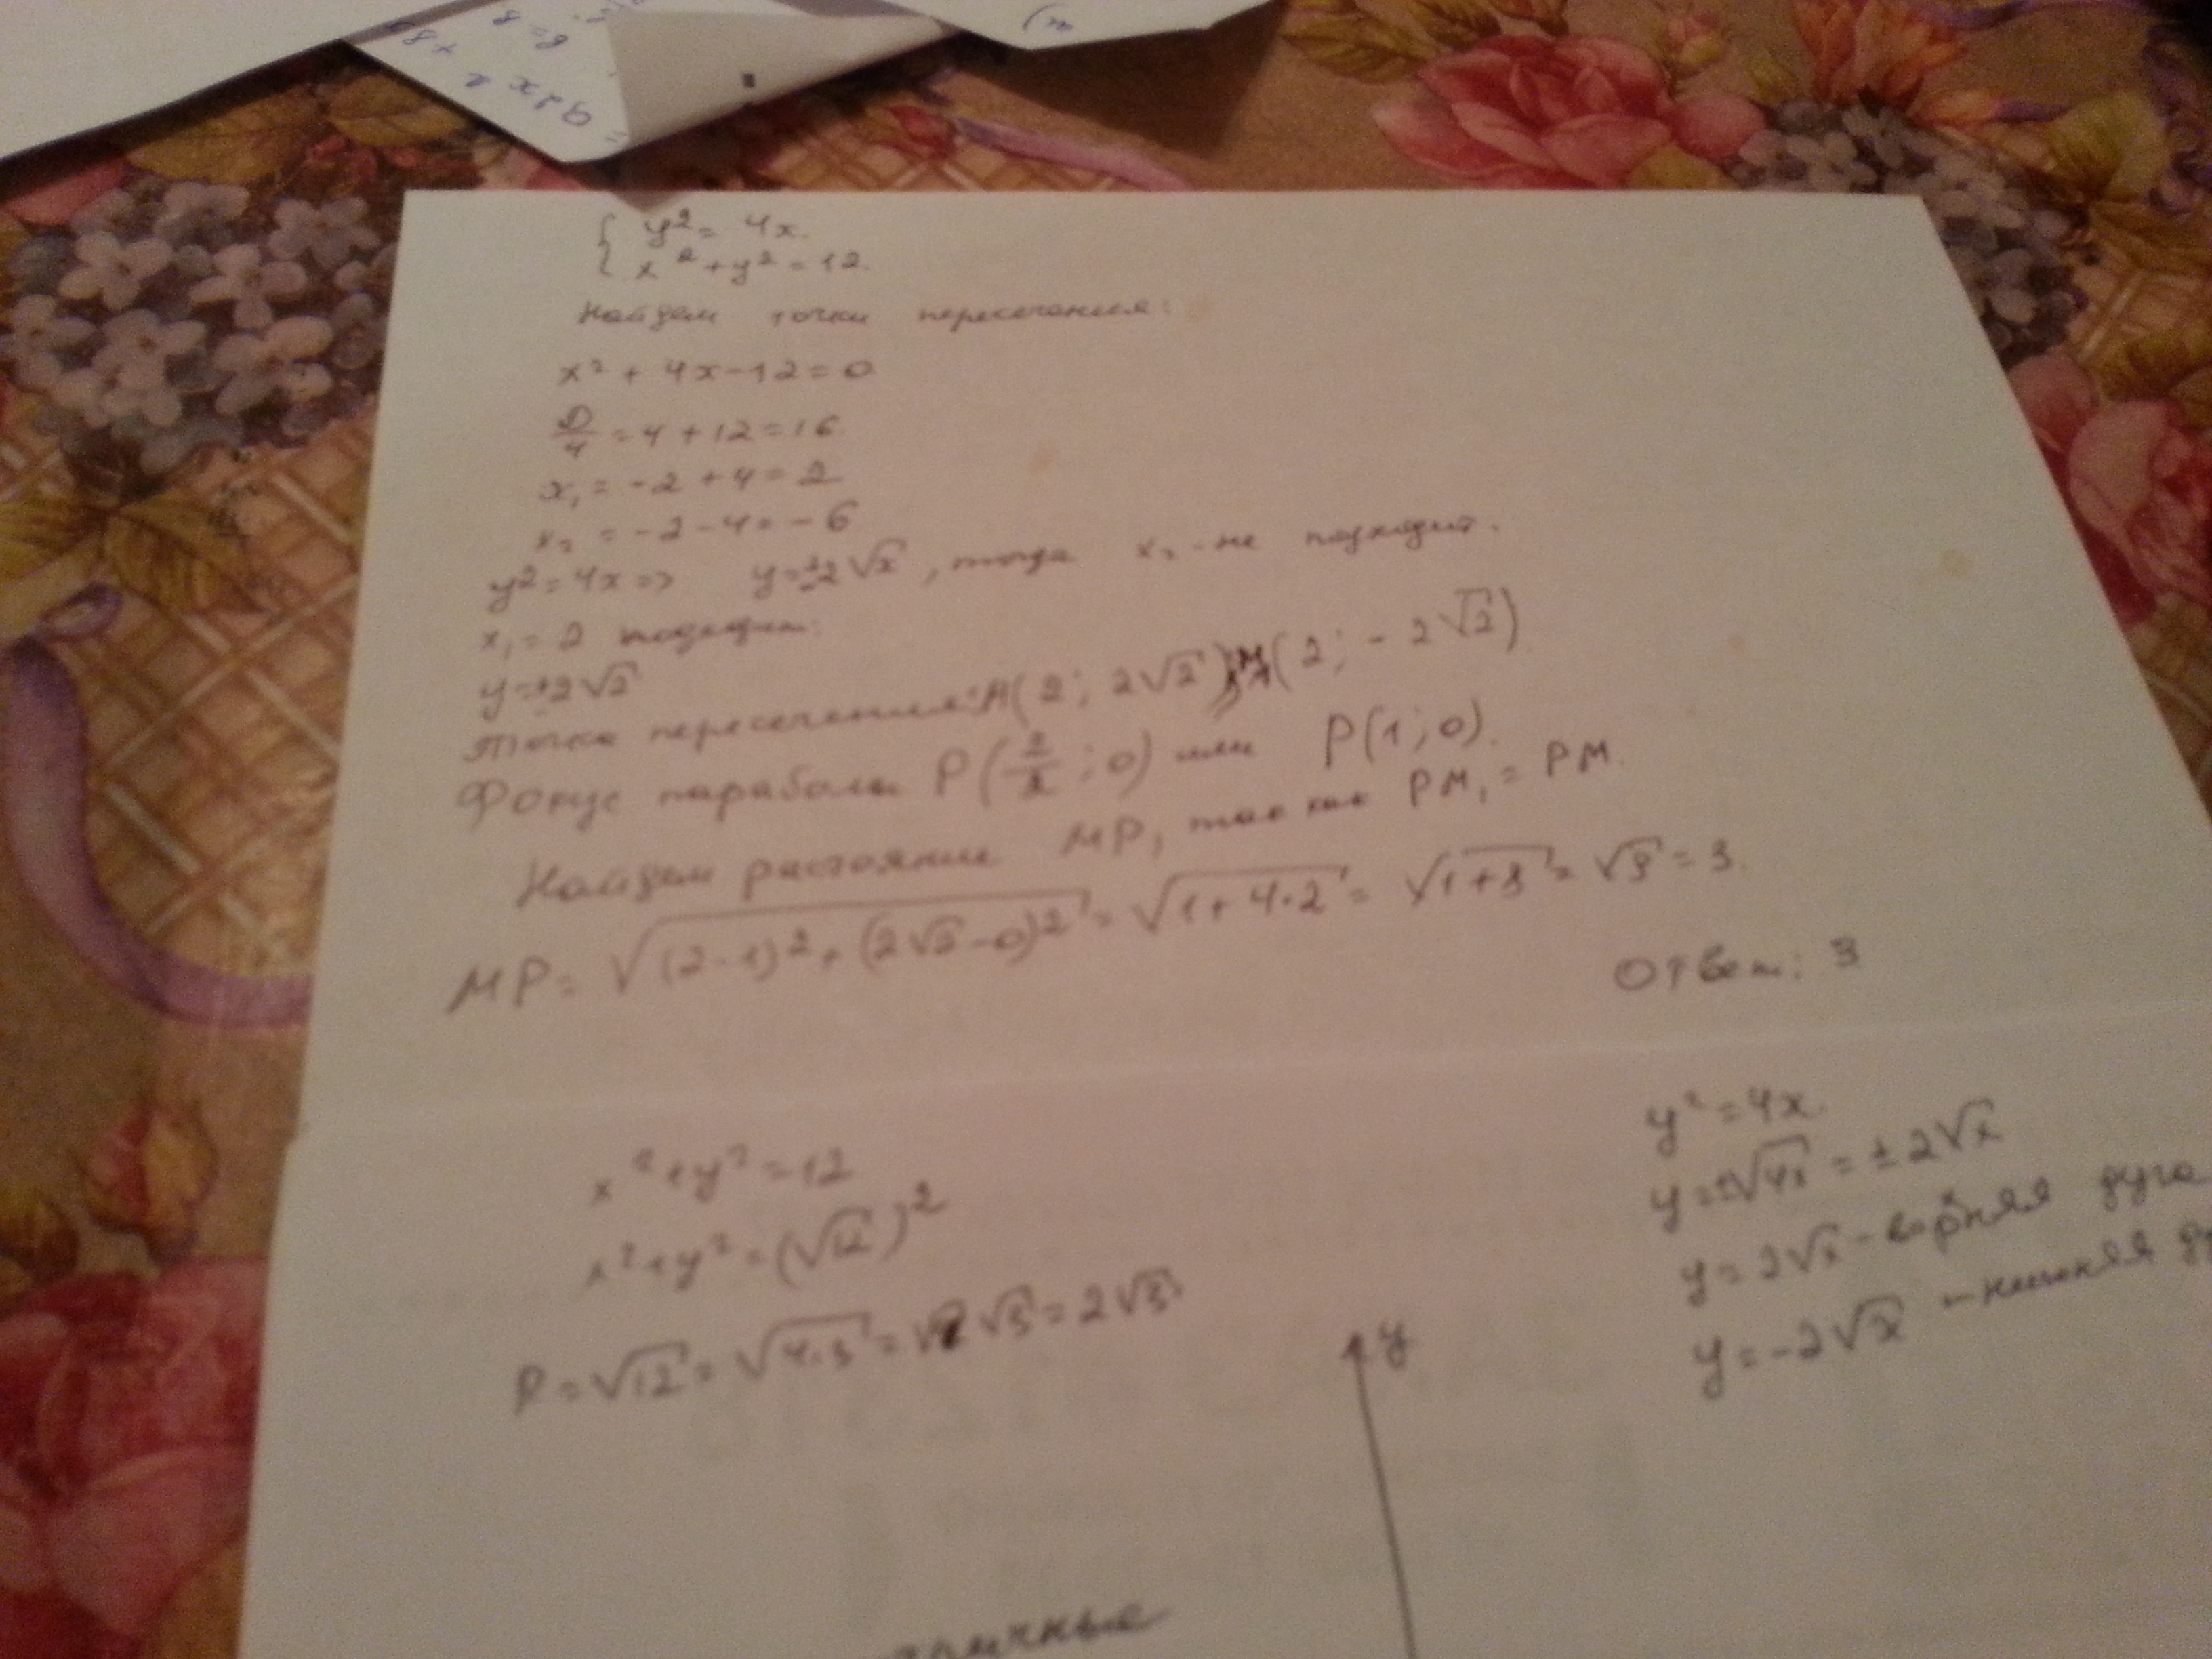 { y² = 4x.
x² + y² = 12.
Найдем точки пересечения:
x² + 4x - 12 = 0
D/4 = 4 + 12 = 16.
x₁ = -2 + 4 = 2
x₂ = -2 - 4 = -6
y² = 4x => y = ±2√x, тогда x₂ - не подходит.
x₁ = 2 подходит.
y = ±2√2
Точки пересечения: М(2; 2√2); М₁(2; -2√2).
Фокус параболы P(2/2; 0) или P(1; 0).
Найдем растояние MP, так как PM₁ = PM.
MP = √((2-1)² + (2√2-0)²) = √(1+4·2) = √(1+8) = √9 = 3.
Ответ: 3
x² + y² = 12
x² + y² = (√12)²
R = √12 = √(4·3) = √3 = 2√3
y² = 4x.
y = ±√4x = ±2√x
y = 2√x - верхняя дуга
y = -2√x - нижняя
y